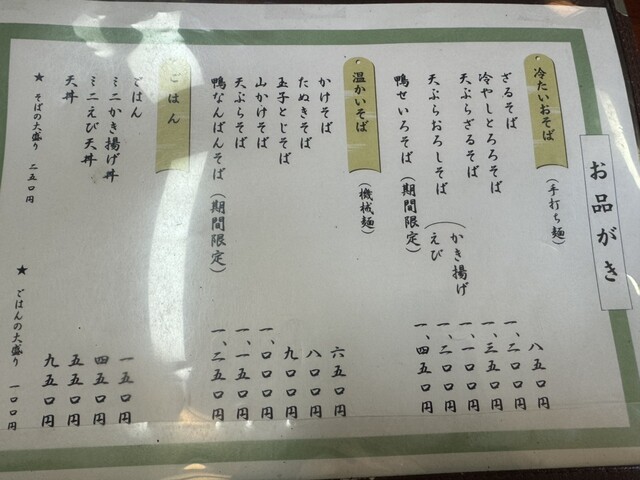 お品がき
冷たいおそば（手打ち麺）
ざるそば 八五〇円
冷やしとろろそば 一、二〇〇円
天ぷらざるそば 一、三五〇円
天ぷらおろしそば
かき揚げ 一、一〇〇円
えび 一、二〇〇円
鴨せいろそば（期間限定） 一、四五〇円
温かいそば（機械麺）
かけそば 六五〇円
たぬきそば 八〇〇円
玉子とじそば 九〇〇円
山かけそば 一、〇〇〇円
天ぷらそば 一、一五〇円
鴨なんばんそば（期間限定） 一、二五〇円
ごはん
ごはん 一五〇円
ミニかき揚げ丼 四五〇円
ミニえび天丼 五五〇円
天丼 九五〇円
★ そばの大盛り 二五〇円
★ ごはんの大盛り 一〇〇円